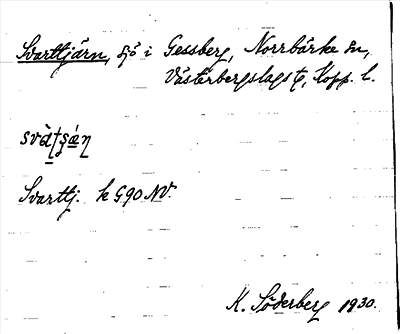 Svarttjärn, sjö i Gessberg, Norrbärke sn,
Västerbergslags tg, Kopp. l.
Svarttj. k G90 NV.
K. Söderberg 1930.